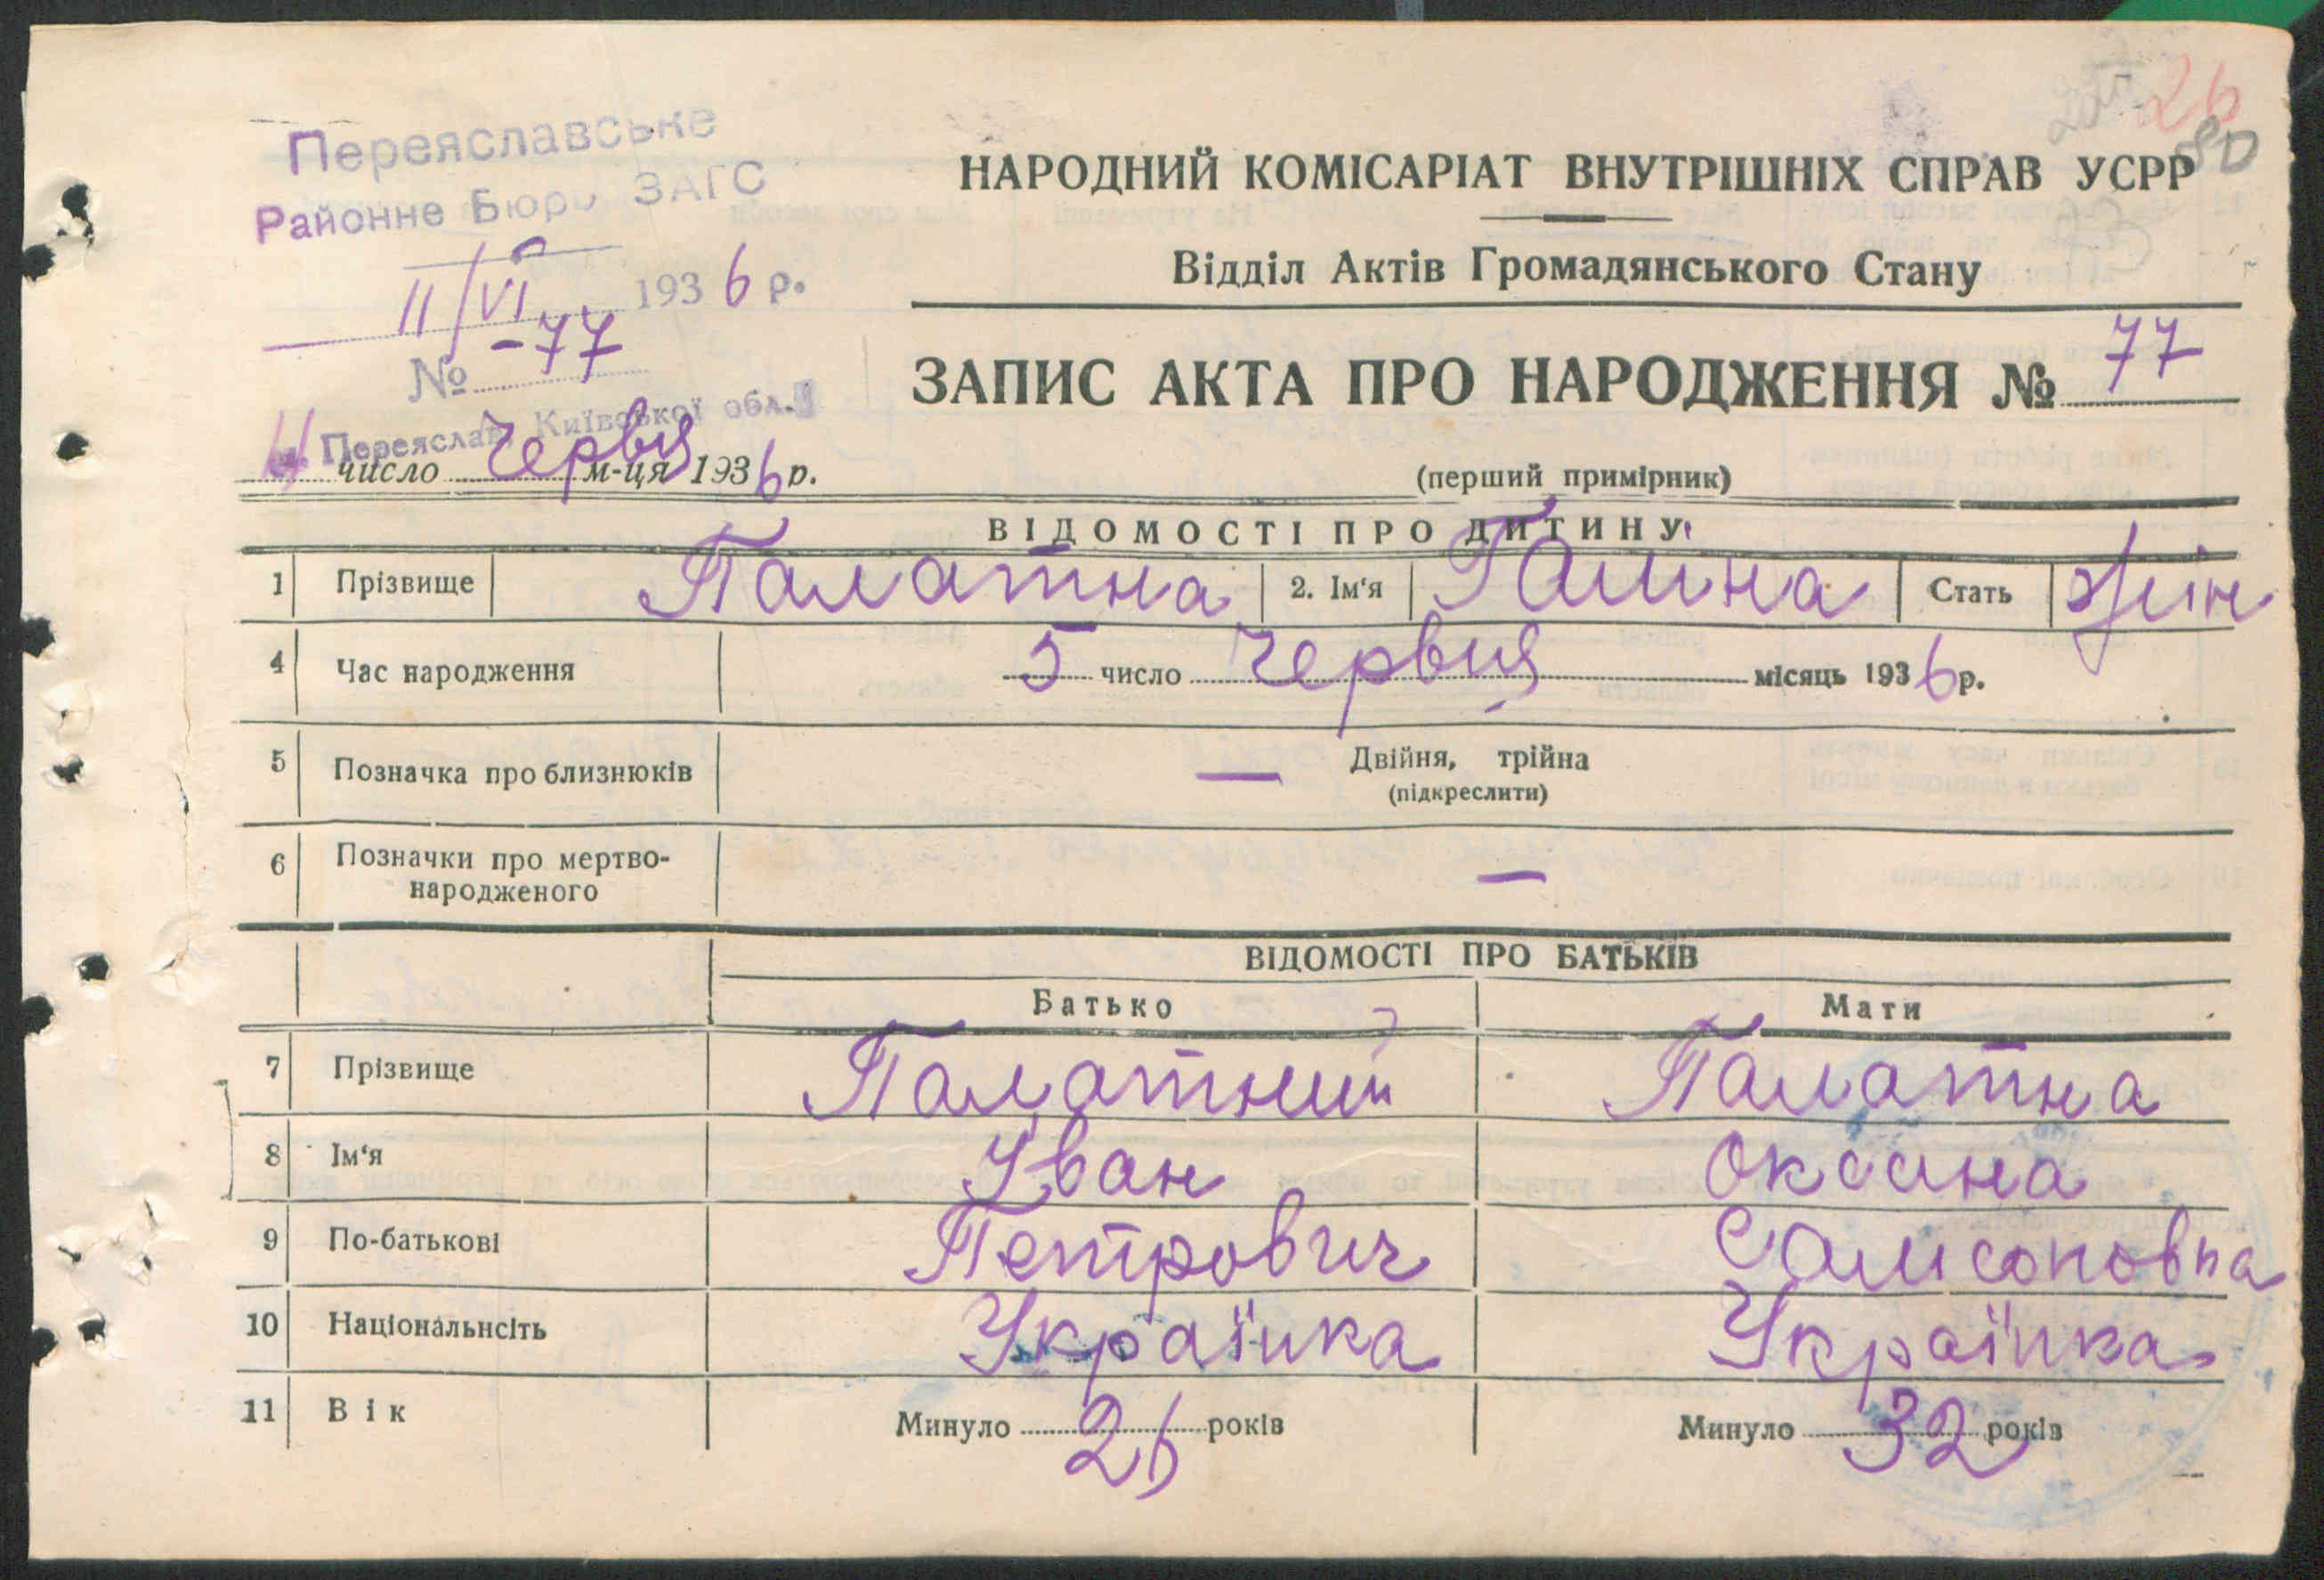 Переяславське
Районне Бюро ЗАГС
11/VI 1936 р.
№ -77
м. Переяслав, Київської обл.
11 число Червця м-ця 1936 р.
26
80
НАРОДНИЙ КОМІСАРІАТ ВНУТРІШНІХ СПРАВ УСРР
Відділ Актів Громадянського Стану
ЗАПИС АКТА ПРО НАРОДЖЕННЯ № 77
(перший примірник)
ВІДОМОСТІ ПРО ДИТИНУ
1 Прізвище Палатна 2. Ім'я Галина Стать жін
4 Час народження 5 число Червця місяць 1936 р.
5 Позначка про близнюків — Двійня, трійна
(підкреслити)
6 Позначки про мертво-
народженого —
ВІДОМОСТІ ПРО БАТЬКІВ
Батько Мати
7 Прізвище Палатний Палатна
8 Ім'я Іван Оксана
9 По-батькові Петрович Самсоновна
10 Національнсіть Українка Українка
11 Вік Минуло 26 років Минуло 32 років